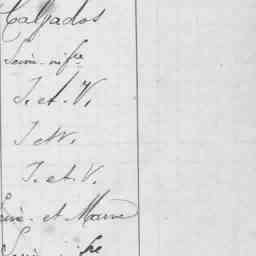 Calvados
Seine-infre
I. et. V.
I et V.
I. et. V.
Seine-et Marne
Seine-infre